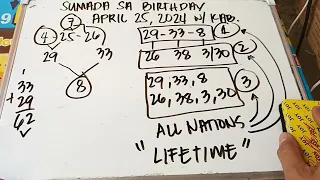 SUMADA SA BIRTHDAY
APRIL 25, 2024 W/ KAB.
7
4 25 - 26
29 33
8
33
+ 29
62
29 - 33 - 8 1
26 38 3/30 2
29, 33, 8
26, 38, 3, 30 3
ALL NATIONS
" LIFETIME "